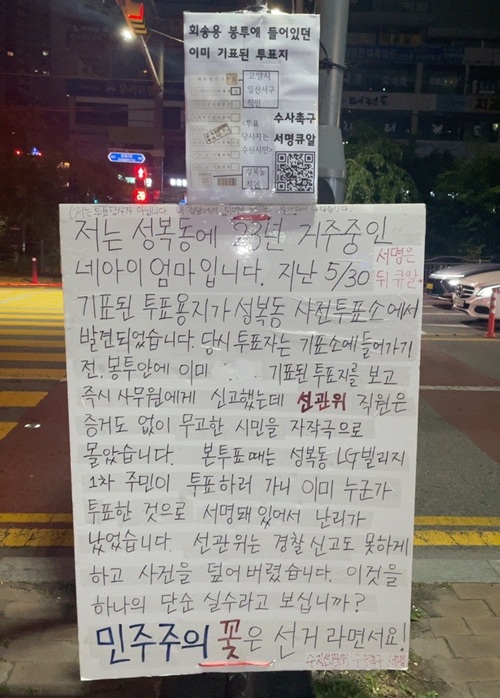 회송용 봉투에 들어있던
이미 기표된 투표지
고양시
일산서구
직인
수사촉구
서명큐알
<투표
당시자는
수원시민>
성복동
직인
저는 성복동에 23년 거주중인
네아이 엄마입니다. 지난 5/30
서명은
뒤 큐알
기표된 투표용지가 성복동 사전투표소에서
발견되었습니다. 당시 투표자는 기표소에 들어가기
전, 봉투안에 이미 기표된 투표지를 보고
즉시 사무원에게 신고했는데 선관위 직원은
증거도 없이 무고한 시민을 자작극으로
몰았습니다. 본투표때는 성복동 LG빌리지
1차 주민이 투표하러 가니 이미 누군가
투표한 것으로 서명돼 있어서 난리가
났었습니다. 선관위는 경찰 신고도 못하게
하고 사건을 덮어 버렸습니다. 이것을
하나의 단순 실수라고 보십니까?
민주주의 꽃은 선거 라면서요!